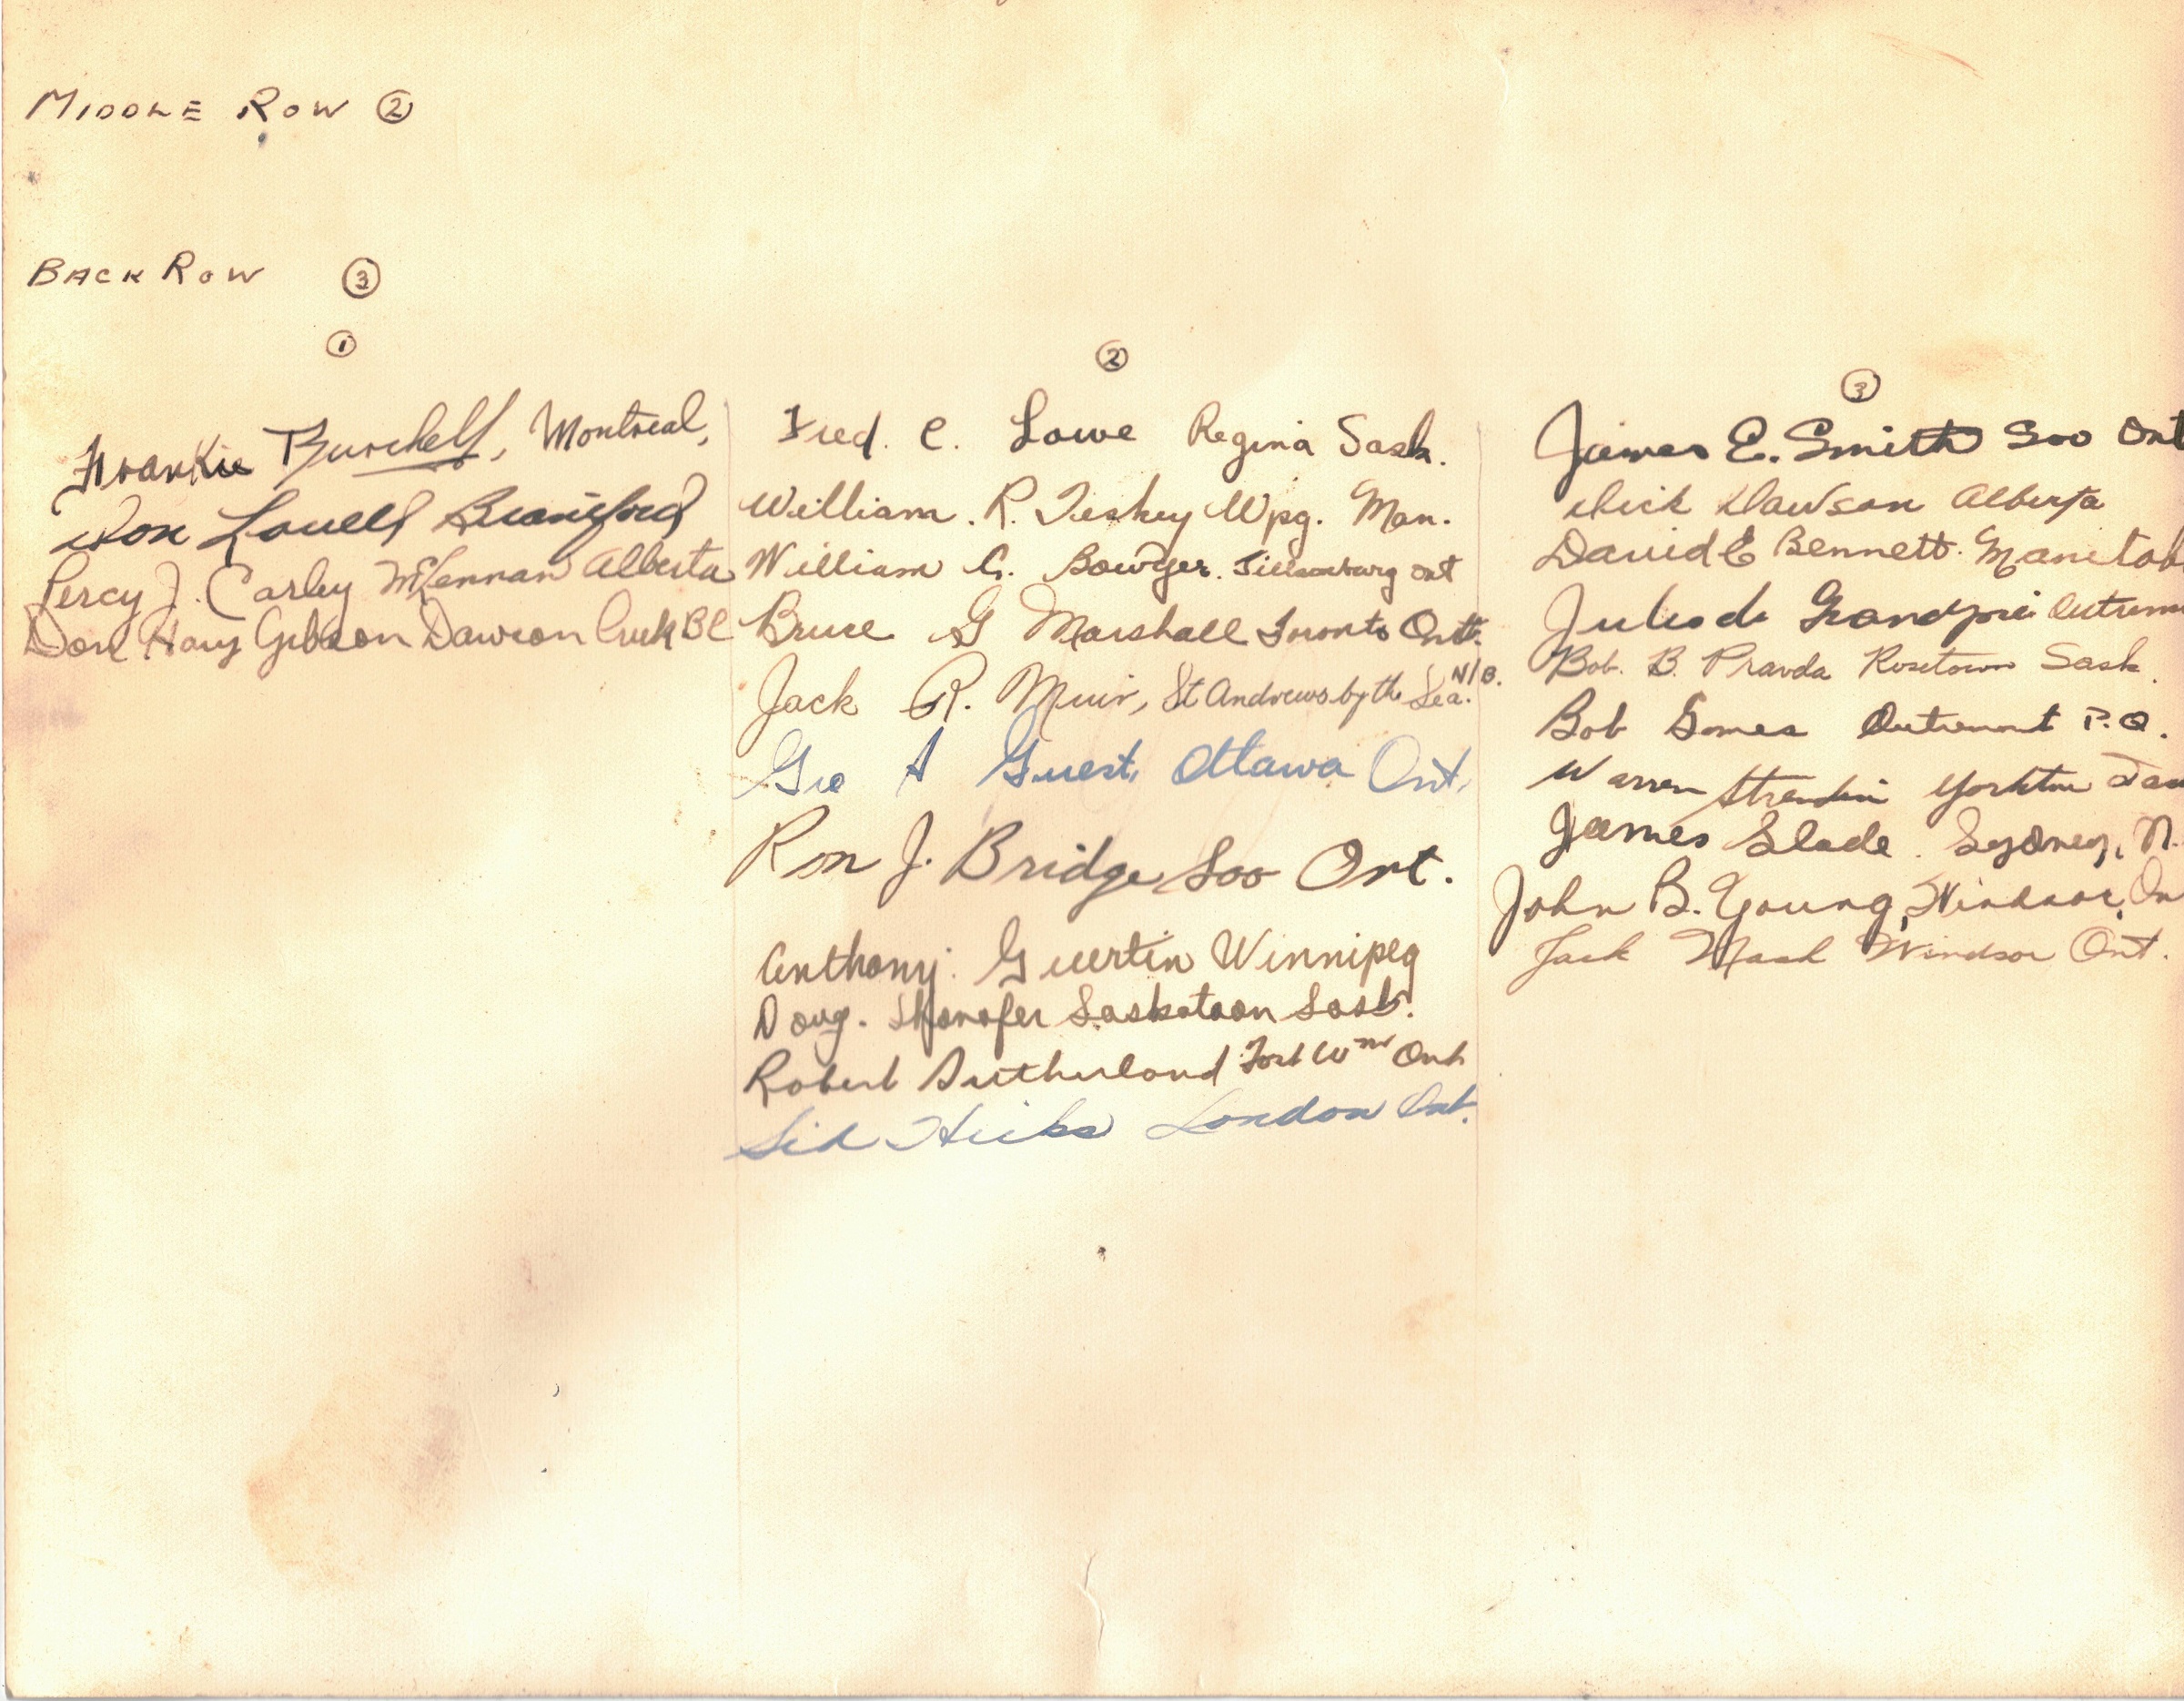 MIDDLE ROW ②
BACK ROW ③
①
Frankie Burchell, Montreal,
Don Lowell Brantford
Percy J. Carley McLennan Alberta
Don Harry Gibson Dawson Creek BC
②
Fred. C. Lowe Regina Sask.
William. R. Teskey Wpg. Man.
William G. Bowyer. Tillsonburg Ont
Bruce G Marshall Toronto Ont.
Jack R. Muir, St Andrews by the Sea. N/B.
Geo A Guest, Ottawa Ont.
Ron J. Bridge Soo Ont.
Anthony. Guertin Winnipeg
Doug. Saskatoon Sask.
Robert Sutherland Fort Wm Ont
Sid Hicks London Ont.
③
James E. Smith Soo Ont
Dick Dawson Alberta
David E Bennett. Manitob
Jules de Grandpré Outrem
Bob. B. Pravda Rosetown Sask.
Bob Gomes Outremont P.Q.
Warren Yorkton
James Slade. Sydney, N.
John B. Young, Windsor, On
Jack Windsor Ont.